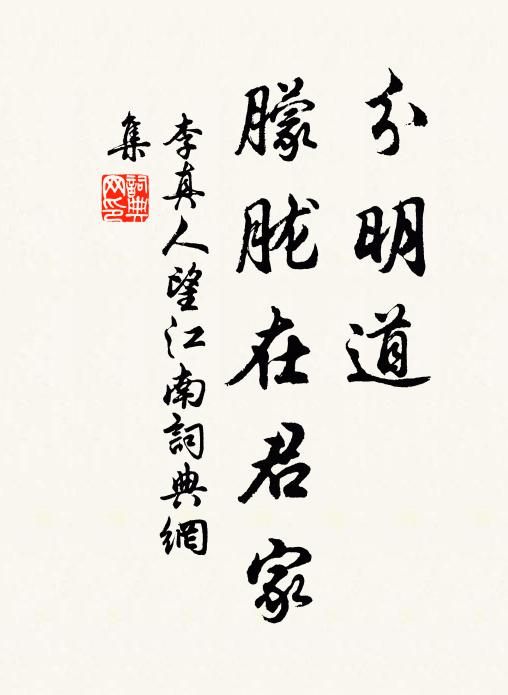 分明道
朦胧在君家
李真人望江南詞典網
集
詞典网印